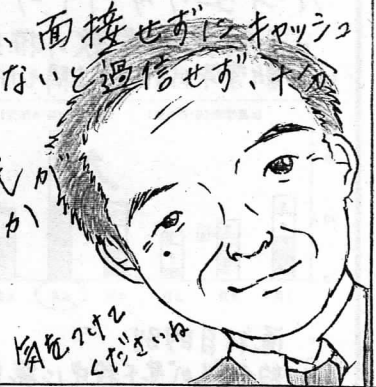 、面接せずにキャッシュ
ないと過信せず、十分
んが
か
気をつけて
くださいね